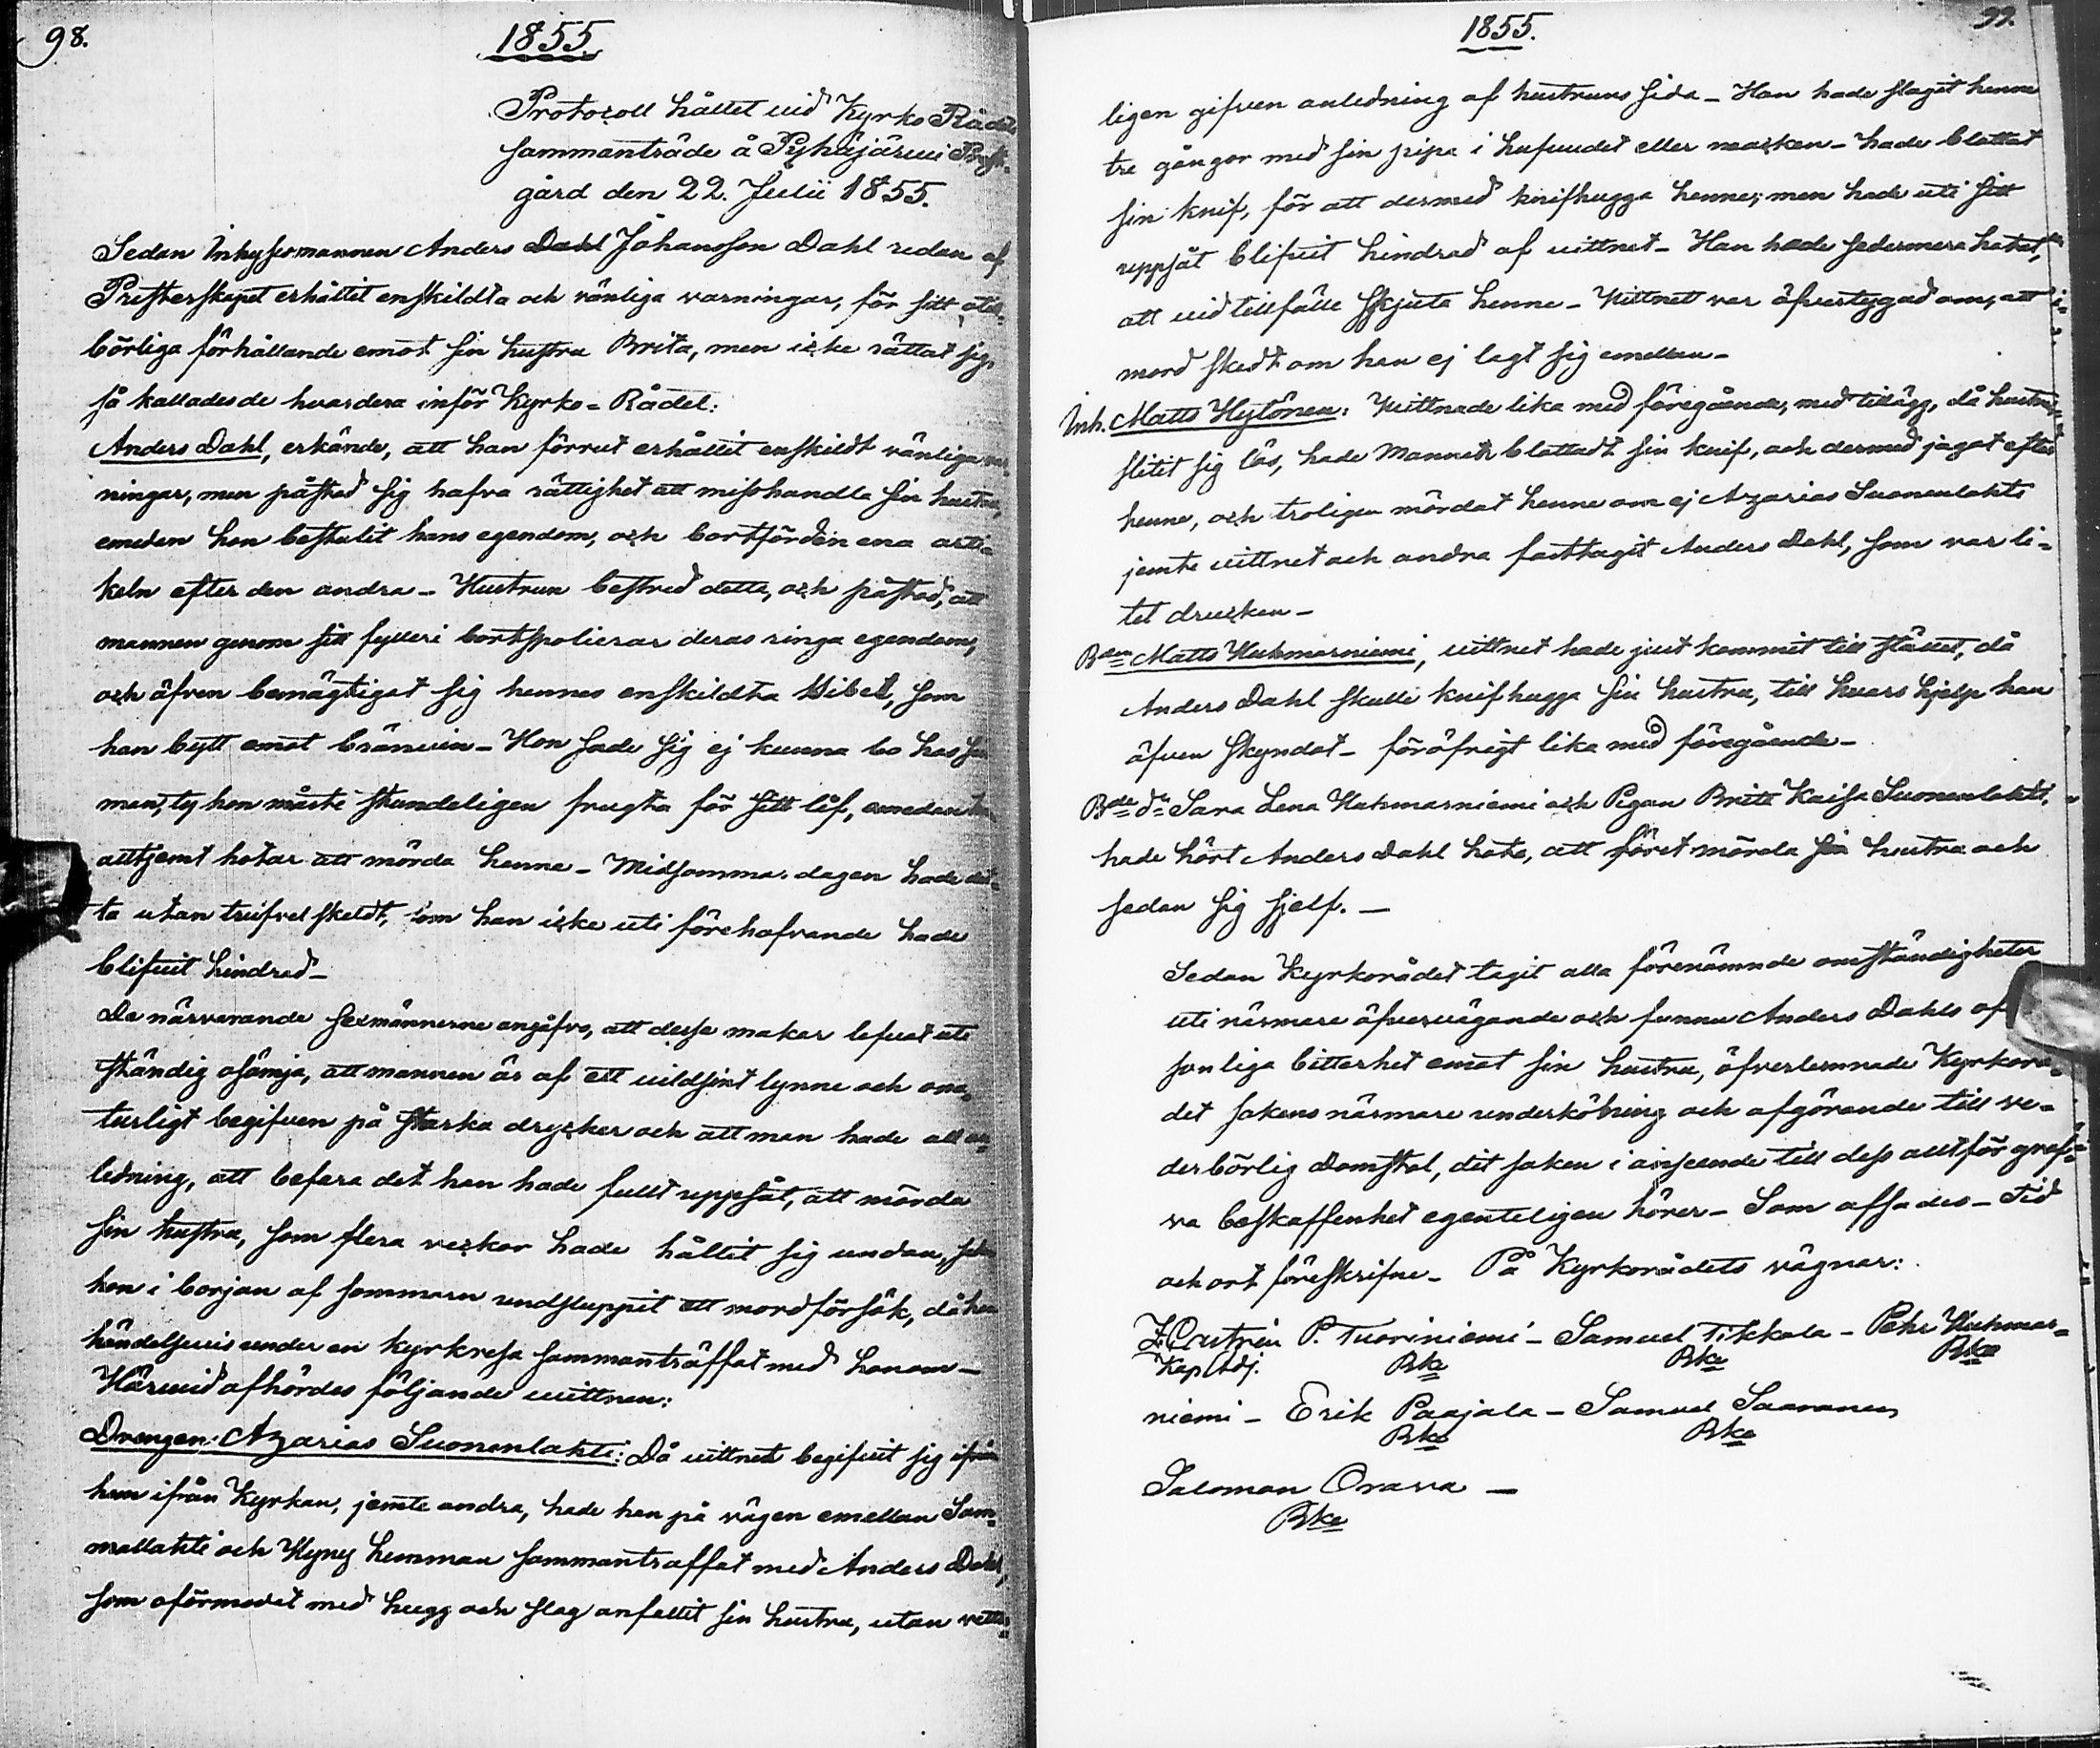 98.
1855
Protocoll hållet vid Kyrko Råds
sammanträde å Pyhäjärvi Prest-
gård den 22. Julii 1855.
Sedan Inhysesmannen Anders Dahl Johansson Dahl redan af
Presterskapet erhållit enskildta och vänliga varningar, för sitt otill-
börliga förhållande emot sin hustru Brita, men icke rättat sig,
så kallades de hvardera inför Kyrko-Rådet:
Anders Dahl, erkände, att han förrut erhållit enskildt vänliga var-
ningar, men påstod sig hafva rättighet att misshandla sin hustru,
emedan hon bestulit hans egendom, och bortförde den ena arti-
keln efter den andra - Hustrun bestred detta, och påstod, att
mannen genom sitt fylleri bortspolierar deras ringa egendom,
och äfven bemägtigat sig hennes enskildta Bibel, som
han bytt emot bränvin - Hon sade sig ej kunna bo hos sin
man, ty hon måste stundeligen frugta för sitt lif, emedan han
alltjemt hotar att mörda henne - Midsommar dagen hade det-
ta utan tvifvel skedt, om han icke uti förehafvande hade
blifvit hindrad -
De närvarande sexmännerne angåfvo, att dessa makar lefvat uti
ständig osämja, att mannen är af ett vildsint lynne och ona-
turligt begifven på starka drycker och att man hade all an-
ledning, att befara det han hade fullt uppsåt, att mörda
sin hustru, som flera veckor hade hållit sig undan, sedan
hon i borjan af sommaren undsluppit ett mordförsök, då hon
händelsevis under en kyrkresa sammanträffat med honom -
Härvid afhördes följande vittnen:
Drengen Azarias Suonenlahti: Då vittnet begifvit sig ifrån
hem ifrån Kyrkan, jemte andra, hade han på vägen emellan Sam-
mallahti och Kyny hemman sammantraffat med Anders Dahl,
som oförmodet med hugg och slag anfallit sin hustru, utan vetter-
99.
1855.
ligen gifven anledning af hustruns sida - Han hade slagit henne
tre gångor med sin pipa i hufvudet eller nacken - hade blottat
sin knif, för att dermed knifhugga henne; men hade uti sitt
uppsåt blifvit hindrad af vittnet - Han hade sedermera hotat,
att vid tillfälle skjuta henne - Vittnet var öfvertygad om, att
mord skedt om han ej lagt sig emellan -
Inh. Matts Hytönen: Vittnade lika med föregående, med tillägg, då hustrun
slitit sig lös, hade Mannen blottadt sin knif, och dermed jagat efter
henne, och troligen mördat henne om ej Azarias Suonenlahti
jemte vittnet och andra fasttagit Anders Dahl, som var li-
tet drucken -
Bden Matts Huhmarniemi, vittnet hade just kommit till stället, då
Anders Dahl skulle knifhugga sin hustru, till hvars hjelp han
äfven skyndat - föröfrigt lika med föregående -
Bde da Sara Lena Huhmarniemi och Pigan Brita Kaisa Suonenlahti,
hade hört Anders Dahl hota, att först mörda sin hustru och
sedan sig sjelf. -
Sedan Kyrkorådet tagit alla förenämnde omständigheter
uti närmare öfvervägande och funnit Anders Dahls of
sonliga bitterhet emot sin hustru, öfverlemnade Kyrkorå-
det sakens närmare undersökning och afgörande till ve-
derbörlig Domstol, dit saken i anseende till dess alltför grof-
va beskaffenhet egenteligen hörer - Som affades - Tid
och ort föreskrifne - På Kyrkorådets vägnar:
Z Castrén P. Tuoriniemi - Samuel Tikkala - Pehr Huhmar-
Kap Adj. Bke Bke Bke
niemi - Erik Paajala - Samuel Saaranen
Bke Bke
Salomon Orava -
Bke